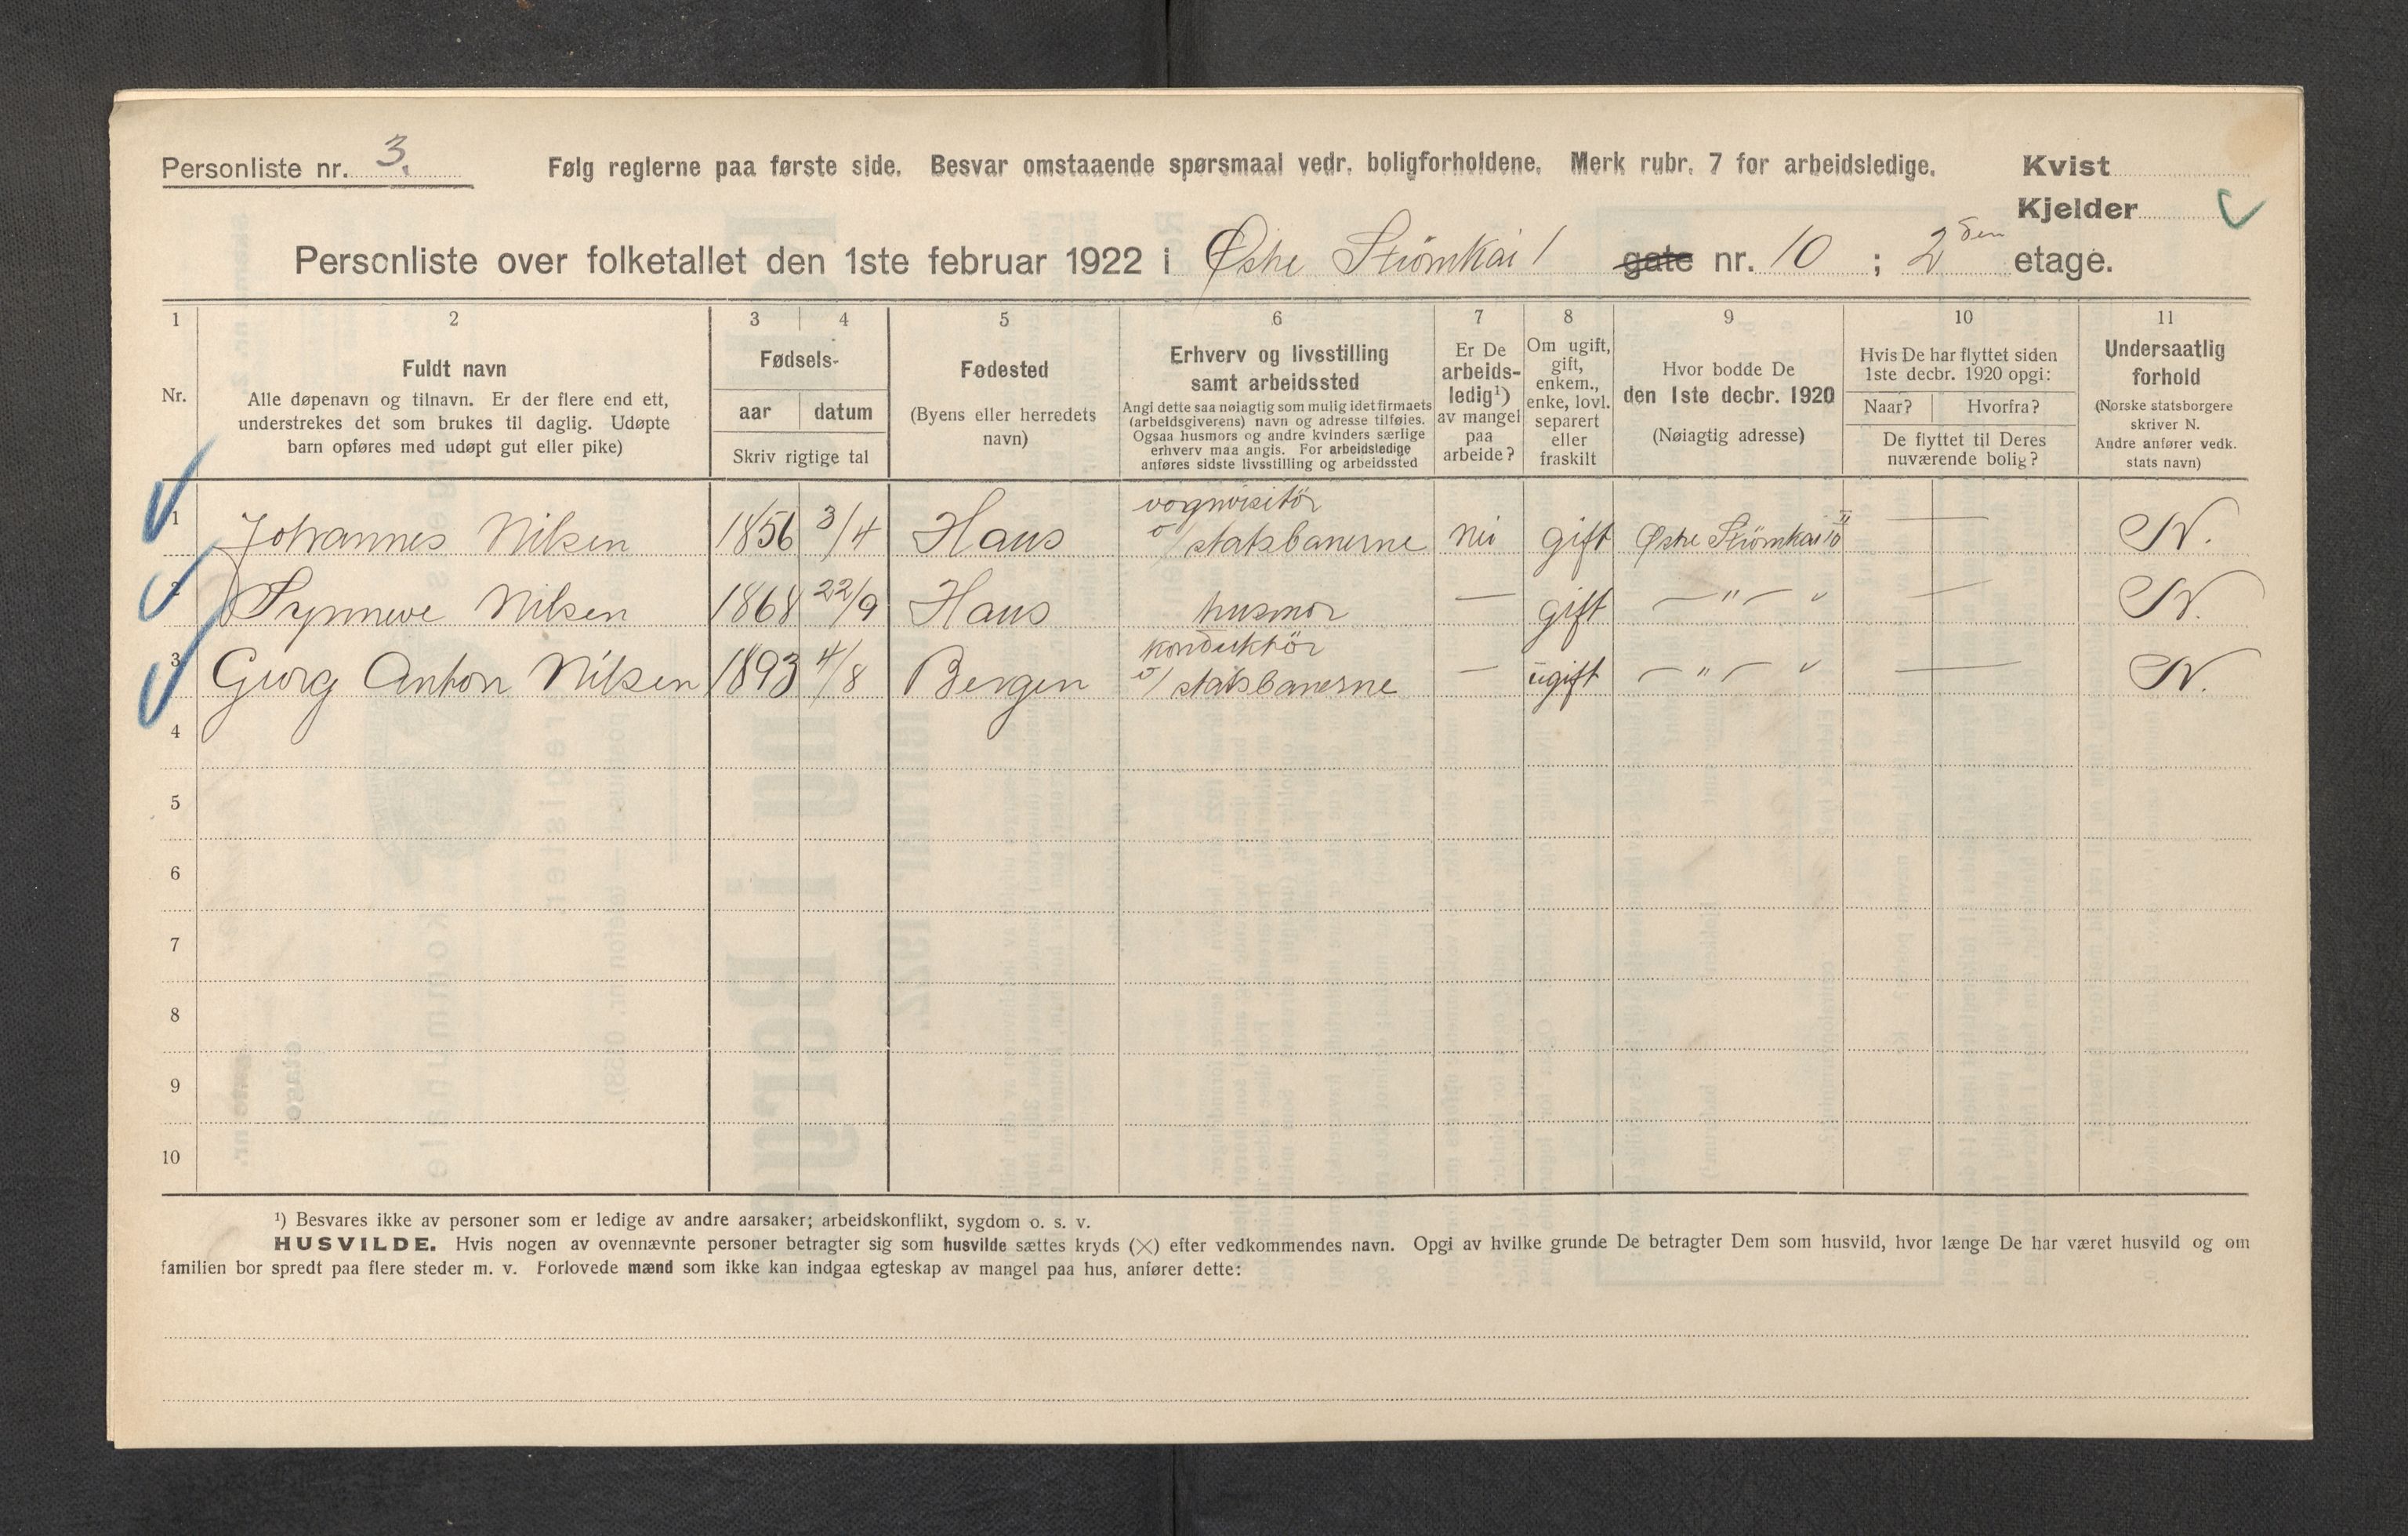 Personliste nr. 3.
Følg reglerne paa første side. Besvar omstaaende spørsmaal vedr. boligforholdene. Merk rubr. 7 for arbeidsledige.
Kvist
Kjelder
Personliste over folketallet den 1ste februar 1922 i Østre Strömkai gate nr. 10 ; 2den etage.
1 2 3 4 5 6 7 8 9 10 11
Nr.
Fuldt navn
Alle døpenavn og tilnavn. Er der flere end ett,
understrekes det som brukes til daglig. Udøpte
barn opføres med udøpt gut eller pike)
Fødsels-
aar datum
Skriv rigtige tal
Fødested
(Byens eller herredets
navn)
Erhverv og livsstilling
samt arbeidssted
Angi dette saa nøiagtig som mulig idet firmaets
(arbeidsgiverens) navn og adresse tilføies.
Ogsaa husmors og andre kvinders særlige
erhverv maa angis. For arbeidsledige
anføres sidste livsstilling og arbeidssted
Er De
arbeids-
ledig¹)
av mangel
paa
arbeide?
Om ugift,
gift,
enkem.,
enke, lovl.
separert
eller
fraskilt
Hvor bodde De
den 1ste decbr. 1920
(Nøiagtig adresse)
Hvis De har flyttet siden
1ste decbr. 1920 opgi:
Naar? Hvorfra?
De flyttet til Deres
nuværende bolig?
Undersaatlig
forhold
(Norske statsborgere
skriver N.
Andre anfører vedk.
stats navn)
vognvisitör
1 Johannes Nilsen 1856 3/4 Haus v/ statsbanerne nei gift Østre Strömkai 10 II — N.
2 Synneve Nilsen 1868 22/9 Haus husmor — gift — " — " — N.
konduktör
3 Georg Anton Nilsen 1893 4/8 Bergen v/ statsbanerne — ugift — " — " — N.
4
5
6
7
8
9
10
¹) Besvares ikke av personer som er ledige av andre aarsaker; arbeidskonflikt, sygdom o. s. v.
HUSVILDE. Hvis nogen av ovennævnte personer betragter sig som husvilde sættes kryds (×) efter vedkommendes navn. Opgi av hvilke grunde De betragter Dem som husvild, hvor længe De har været husvild og om
familien bor spredt paa flere steder m. v. Forlovede mænd som ikke kan indgaa egteskap av mangel paa hus, anfører dette: